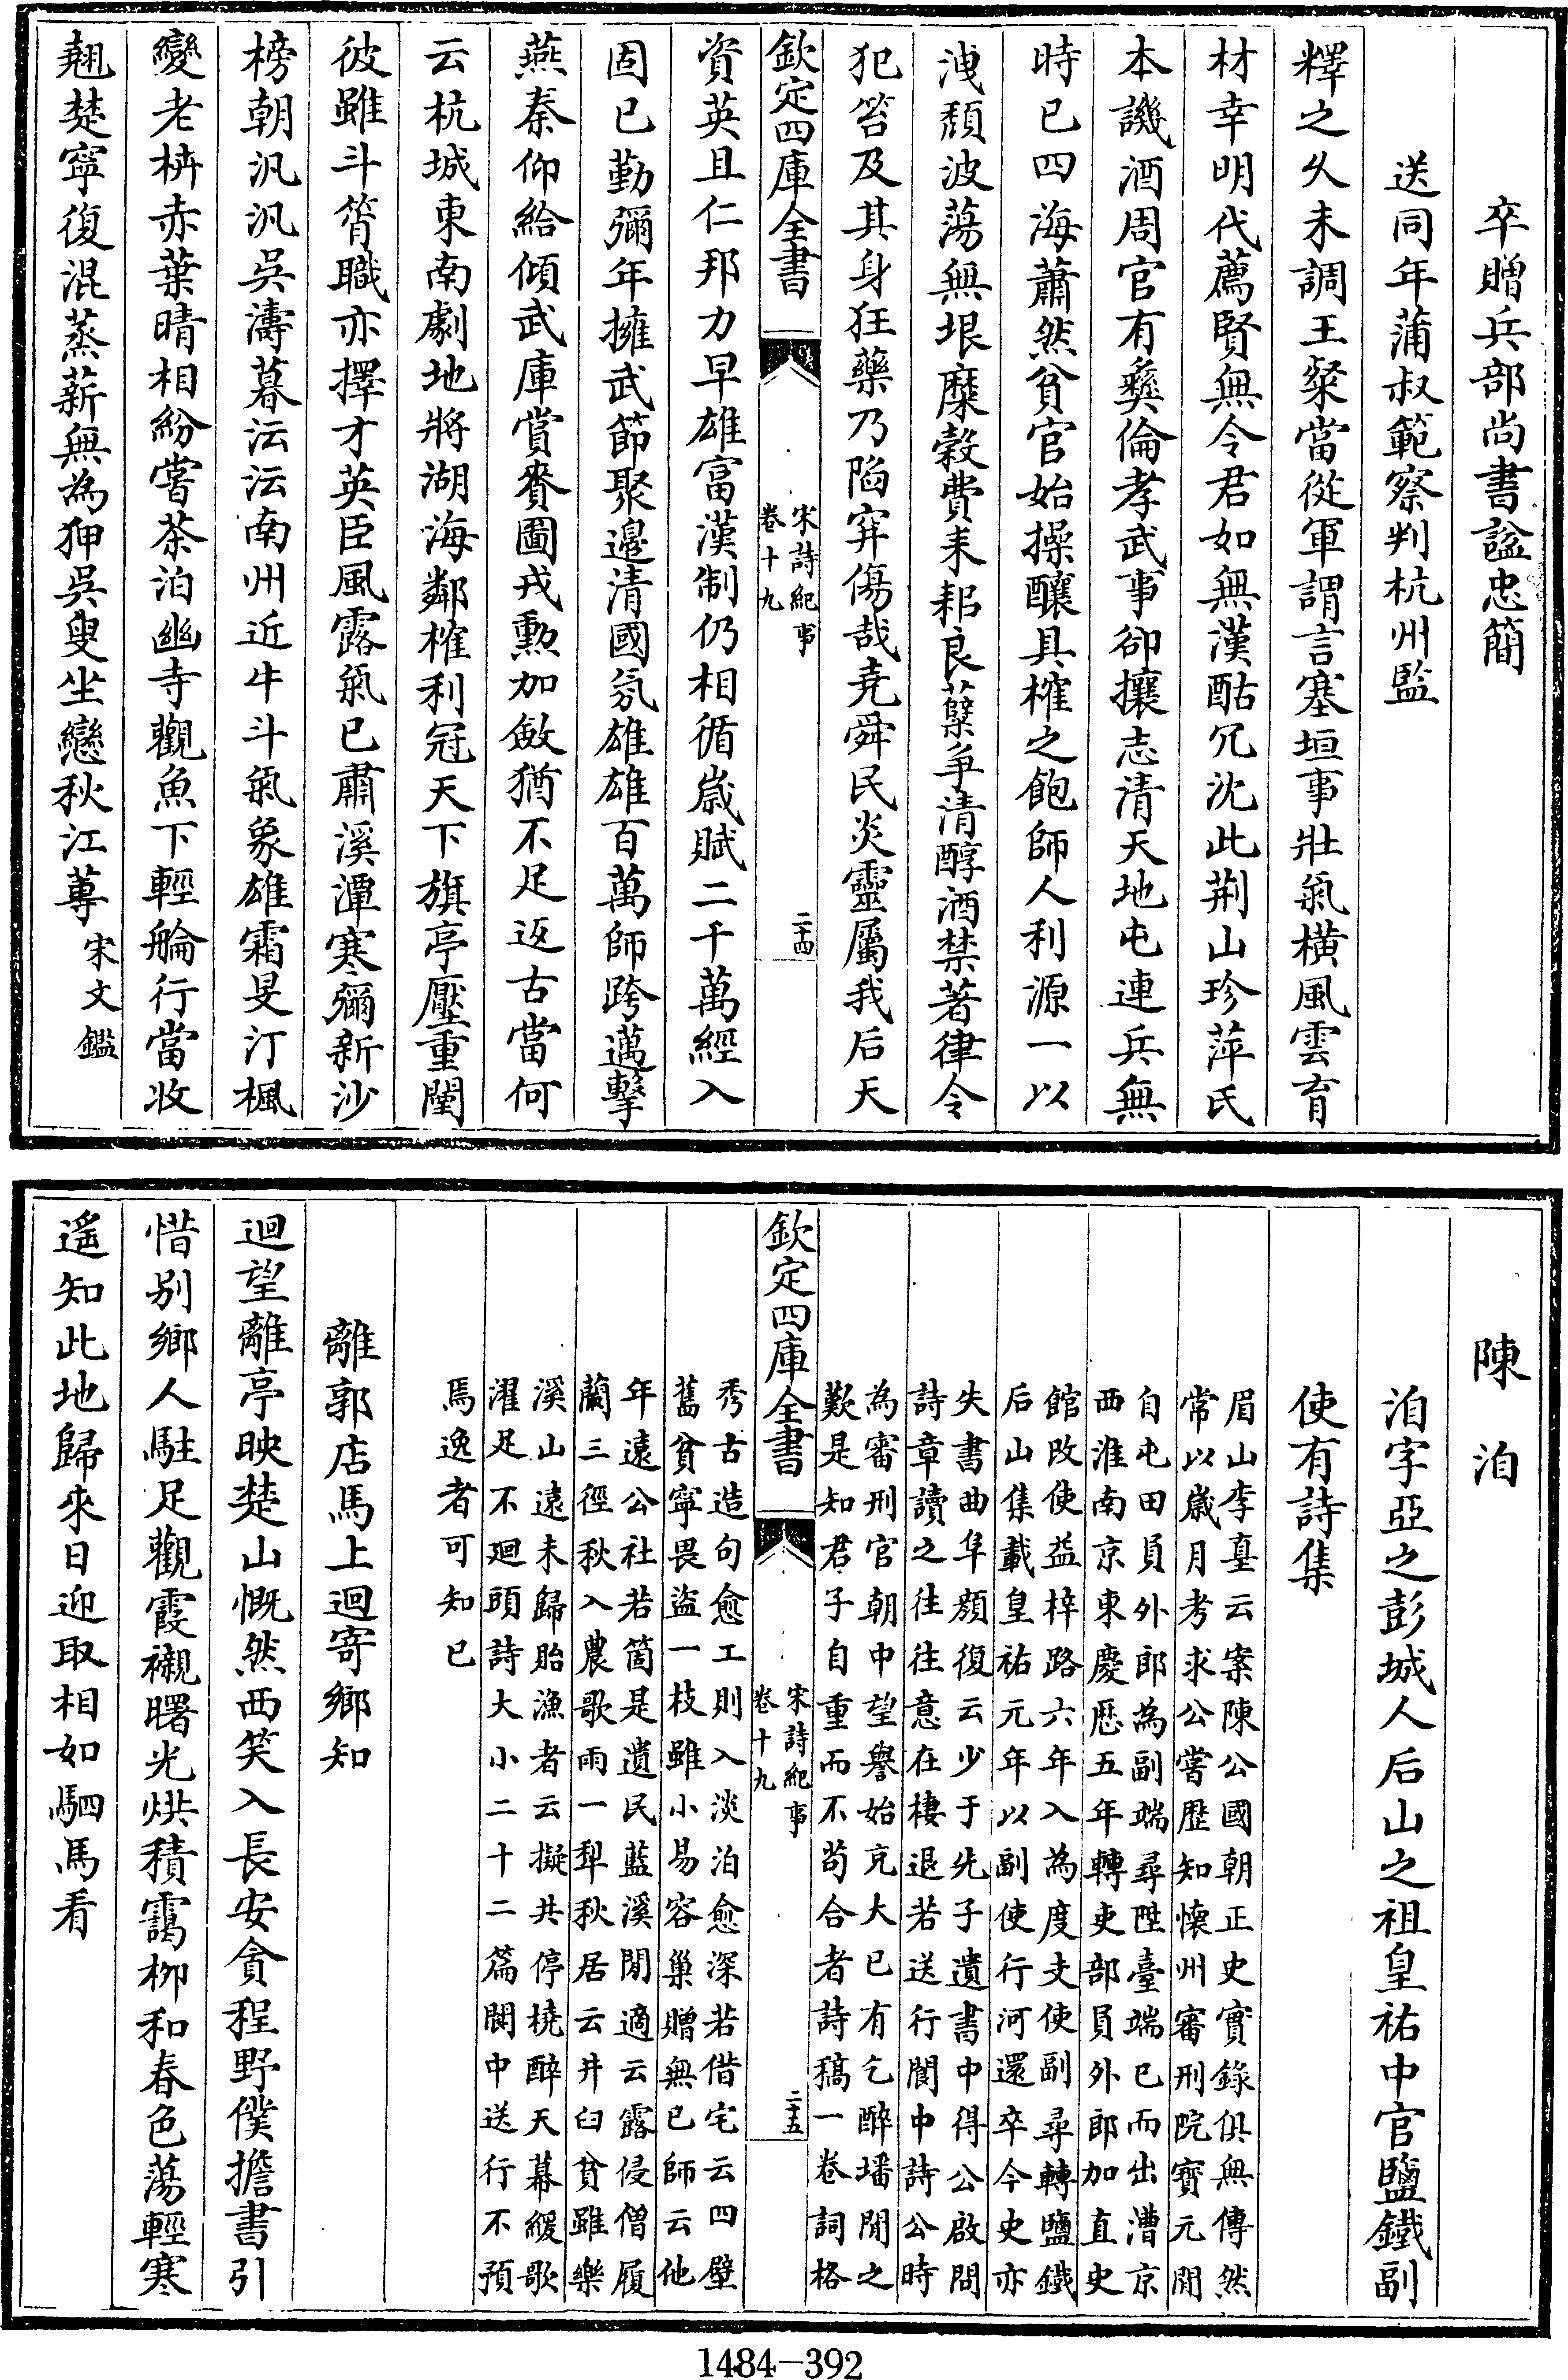 卒贈兵部尚書諡忠簡
送同年蒲叔範察判杭州監
釋之久未調王粲當從軍謂言塞垣事壯氣橫風雲育
材幸明代薦賢無令君如無漢酤冗沈此荆山珍萍氏
本譏酒周官有彜倫孝武事卻攘志清天地屯連兵無
時已四海蕭然貧官始操釀具榷之飽師人利源一以
洩頽波蕩無垠糜穀費耒耜良蘖爭清醇酒禁著律令
犯笞及其身狂藥乃陷穽傷哉堯舜民炎靈屬我后天
欽定四庫全書
宋詩紀事
卷十九
二十四
資英且仁邦力早雄富漢制仍相循歲賦二千萬經入
固已勤彌年擁武節聚邉清國氛雄雄百萬師跨邁擊
燕秦仰給傾武庫賞賚圖戎勲加斂猶不足返古當何
云杭城東南劇地將湖海鄰榷利冠天下旗亭壓重闉
彼雖斗筲職亦擇才英臣風露氣已肅溪潭寒彌新沙
榜朝汎汎吳濤暮沄沄南州近牛斗氣象雄霜旻汀楓
變老柟赤葉晴相紛嘗茶泊幽寺觀魚下輕艑行當收
翹楚寧復混蒸薪無為狎吳叟坐戀秋江蓴
宋文鑑
陳洎
洎字亞之彭城人后山之祖皇祐中官鹽鐵副
使有詩集
眉山李𡌴云案陳公國朝正史實錄俱無傳然
常以歲月考求公嘗歷知懷州審刑院寳元間
自屯田員外郎為副端尋陞臺端已而出漕京
西淮南京東慶厯五年轉吏部員外郎加直史
館改使益梓路六年入為度支使副尋轉鹽鐵
后山集載皇祐元年以副使行河還卒今史亦
失書曲阜顔復云少于先子遺書中得公啟問
詩章讀之往往意在棲退若送行閬中詩公時
為審刑官朝中望譽始充大已有乞醉墦間之
歎是知君子自重而不茍合者詩稿一卷詞格
欽定四庫全書
宋詩紀事
卷十九
二十五
秀古造句愈工則入淡泊愈深若借宅云四壁
舊貧寧畏盜一枝雖小易容巢贈無已師云他
年遠公社若箇是遺民藍溪閒適云露侵僧履
蘭三徑秋入農歌雨一犂秋居云井臼貧雖樂
溪山遠未歸貽漁者云擬共停橈醉天幕緩歌
濯足不廻頭詩大小二十二篇閬中送行不預
焉逸者可知已
離郭店馬上迴寄鄉知
迴望離亭映楚山慨然西笑入長安貪程野僕擔書引
惜别鄉人駐足觀霞襯曙光烘積靄柳和春色蕩輕寒
遙知此地歸來日迎取相如駟馬看
1484-392